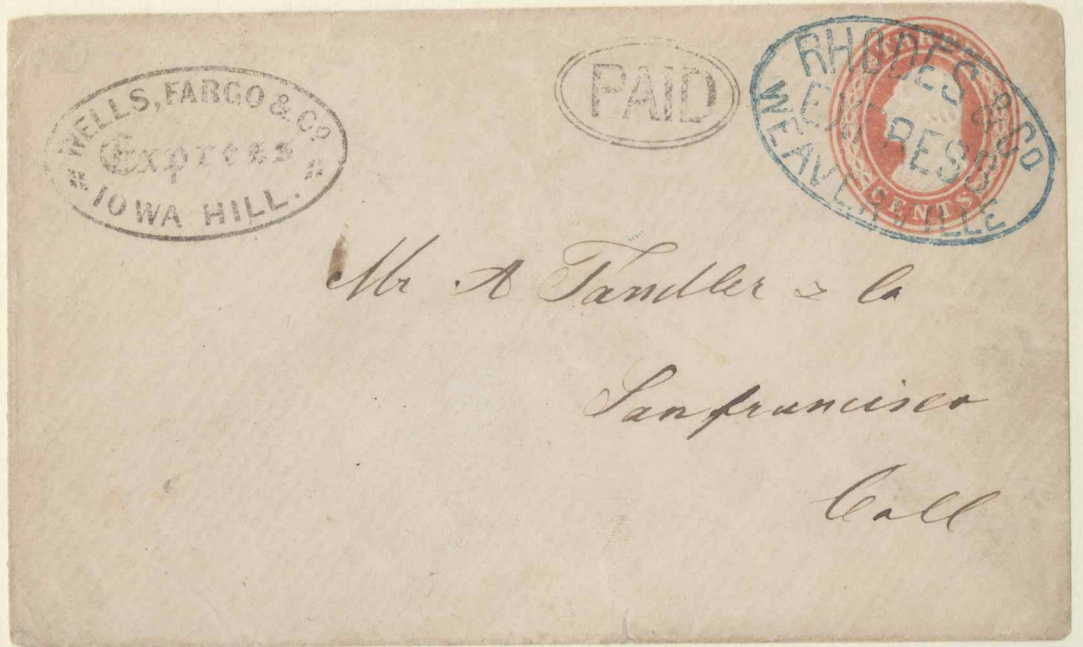 WELLS, FARGO & CO.
Express
IOWA HILL.
PAID
RHODES & CO
EXPRESS
WEAVERVILLE
CENTS
Mr A Tandler & Co
Sanfrancisco
Call